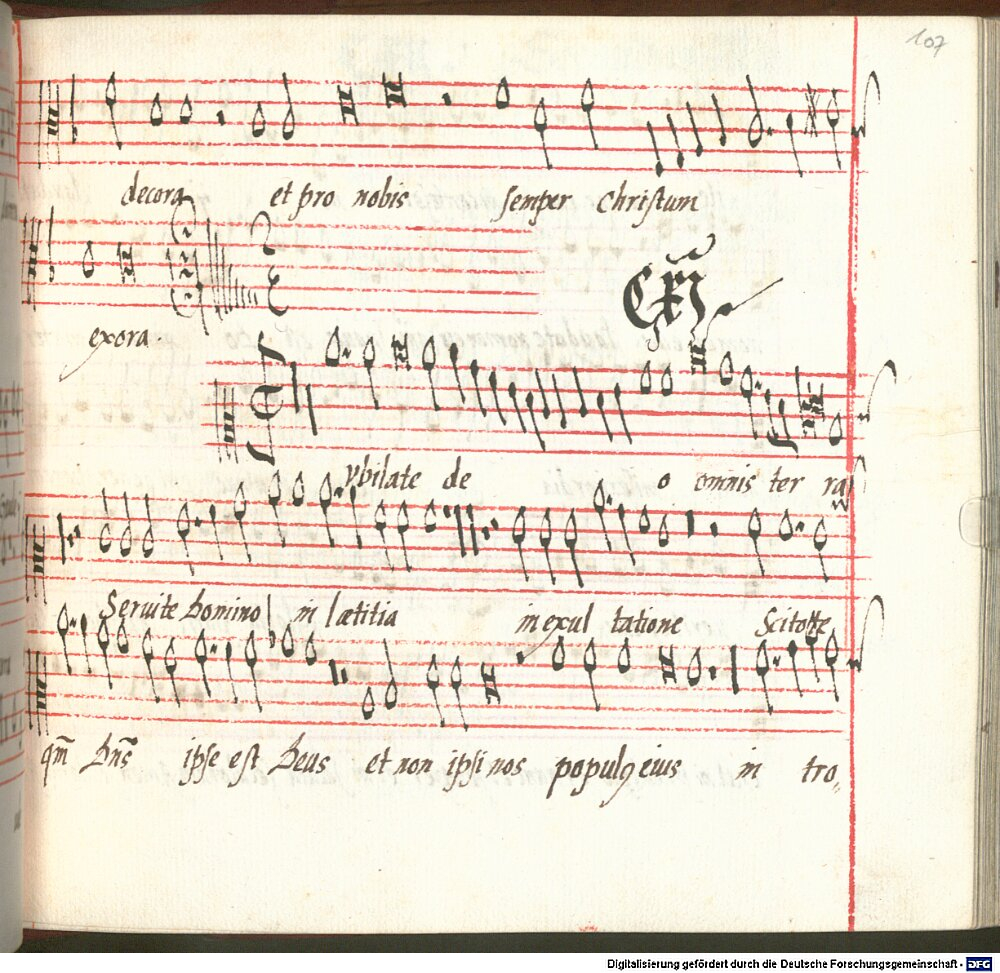 107
decora et pro nobis semper Christum
exora
Vbilate de o omnis ter ra
Seruite Domino in lætitia in exul tatione Scitote
qm̃ Dñs ipse est Deus et non ipsi nos populꝯ eius in tro,,
Digitalisierung gefördert durch die Deutsche Forschungsgemeinschaft - DFG